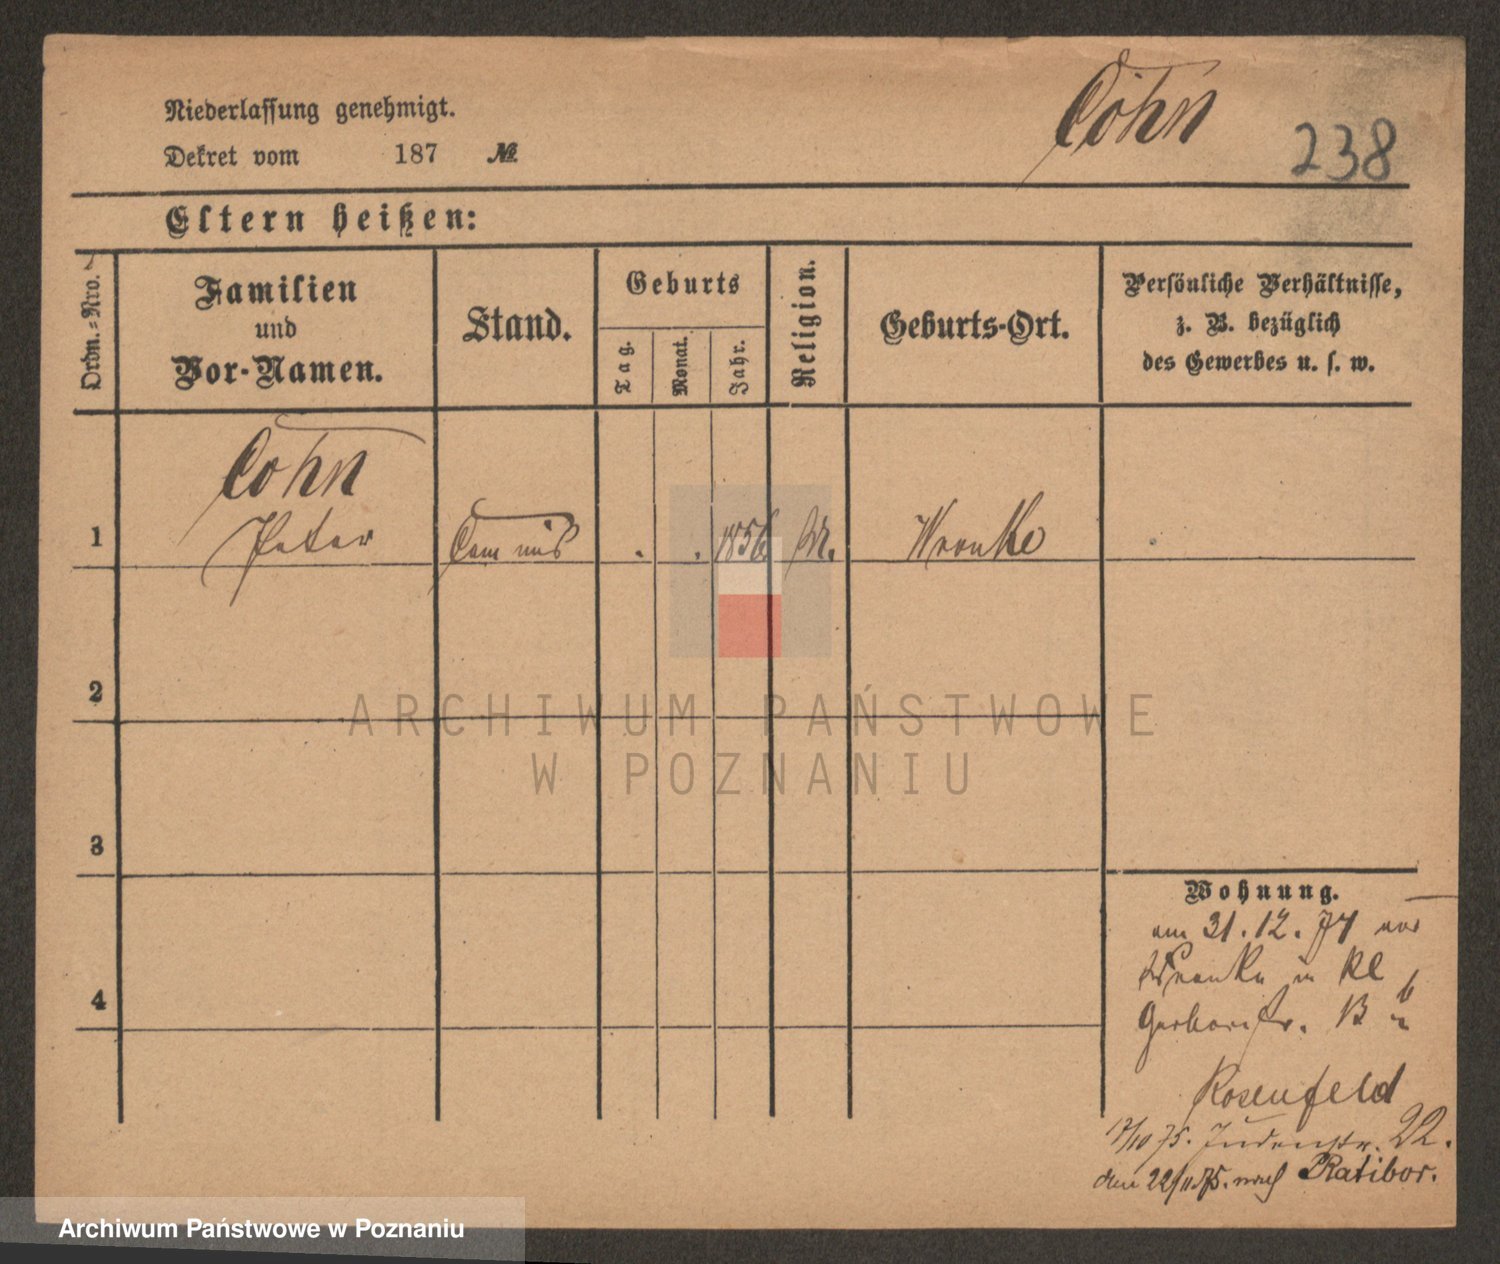 Niederlassung genehmigt.
Cohn
238
Dekret vom 187 №
Eltern heißen:
Ordn.=Nro.
Familien
und
Vor-Namen.
Stand.
Geburts
Tag.
Monat.
Jahr.
Religion.
Geburts-Ort.
Persönliche Verhältnisse,
z. B. bezüglich
des Gewerbes u. s. w.
Cohn
1 Peter Commis . . 1856 M. Wronke
2
ARCHIWUM PAŃSTWOWE
W POZNANIU
3
Wohnung.
am 31.12.74 aus
Wronke in Kl
4
Gerberstr. B
Rosenfeld
17/10 75. Judenstr. 22.
den 22/11 75. nach Ratibor.
Archiwum Państwowe w Poznaniu